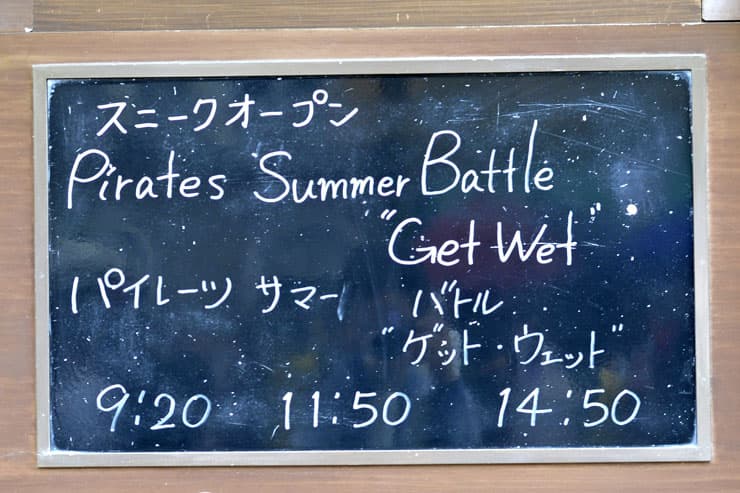 スニークオープン
Pirates Summer Battle
"Get Wet"
パイレーツ サマー バトル
"ゲッド・ウェット"
9:20 11:50 14:50